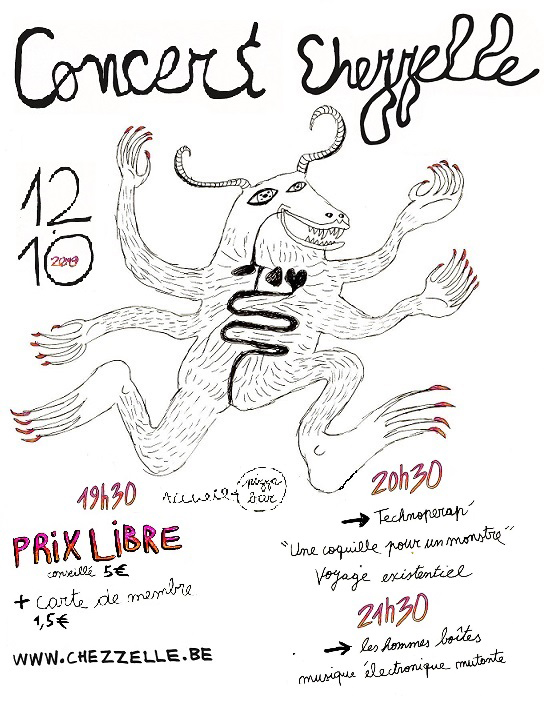 Concert Chezzelle
12
10
2019
19h30
Accueil
pizza
bar
PRIX LIBRE
conseillé 5€
+ carte de membre
1,5€
WWW.CHEZZELLE.BE
20h30
→ Technoperap'
"Une coquille pour un monstre"
Voyage existentiel
21h30
→ les hommes boîtes
musique électronique mutante